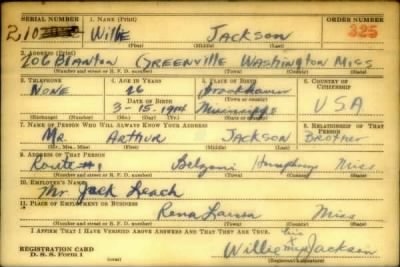 SERIAL NUMBER 1. NAME (Print) ORDER NUMBER
Willie Jackson 325
(First) (Middle) (Last)
2. ADDRESS (Print)
206 Blanton Greenville Washington Miss
(Number and street or R. F. D. number) (Town) (County) (State)
3. TELEPHONE 4. AGE IN YEARS 5. PLACE OF BIRTH 6. COUNTRY OF CITIZENSHIP
None 26 Brookhaven
DATE OF BIRTH (Town or county) U S A
3-15-1914 Mississippi
(Exchange) (Number) (Mo.) (Day) (Yr.) (State or country)
7. NAME OF PERSON WHO WILL ALWAYS KNOW YOUR ADDRESS 8. RELATIONSHIP OF THAT PERSON
Mr. Arthur Jackson Brother
(Mr., Mrs., Miss) (First) (Middle) (Last)
9. ADDRESS OF THAT PERSON
Route #1 Belzoni Humphrey Miss
(Number and street or R. F. D. number) (Town) (County) (State)
10. EMPLOYER'S NAME
Mr Jack Leach
11. PLACE OF EMPLOYMENT OR BUSINESS
Rena Miss
(Number and street or R. F. D. number) (Town) (County) (State)
I AFFIRM THAT I HAVE VERIFIED ABOVE ANSWERS AND THAT THEY ARE TRUE.
his
REGISTRATION CARD Willie x Jackson
D. S. S. Form 1 (Registrant's signature)